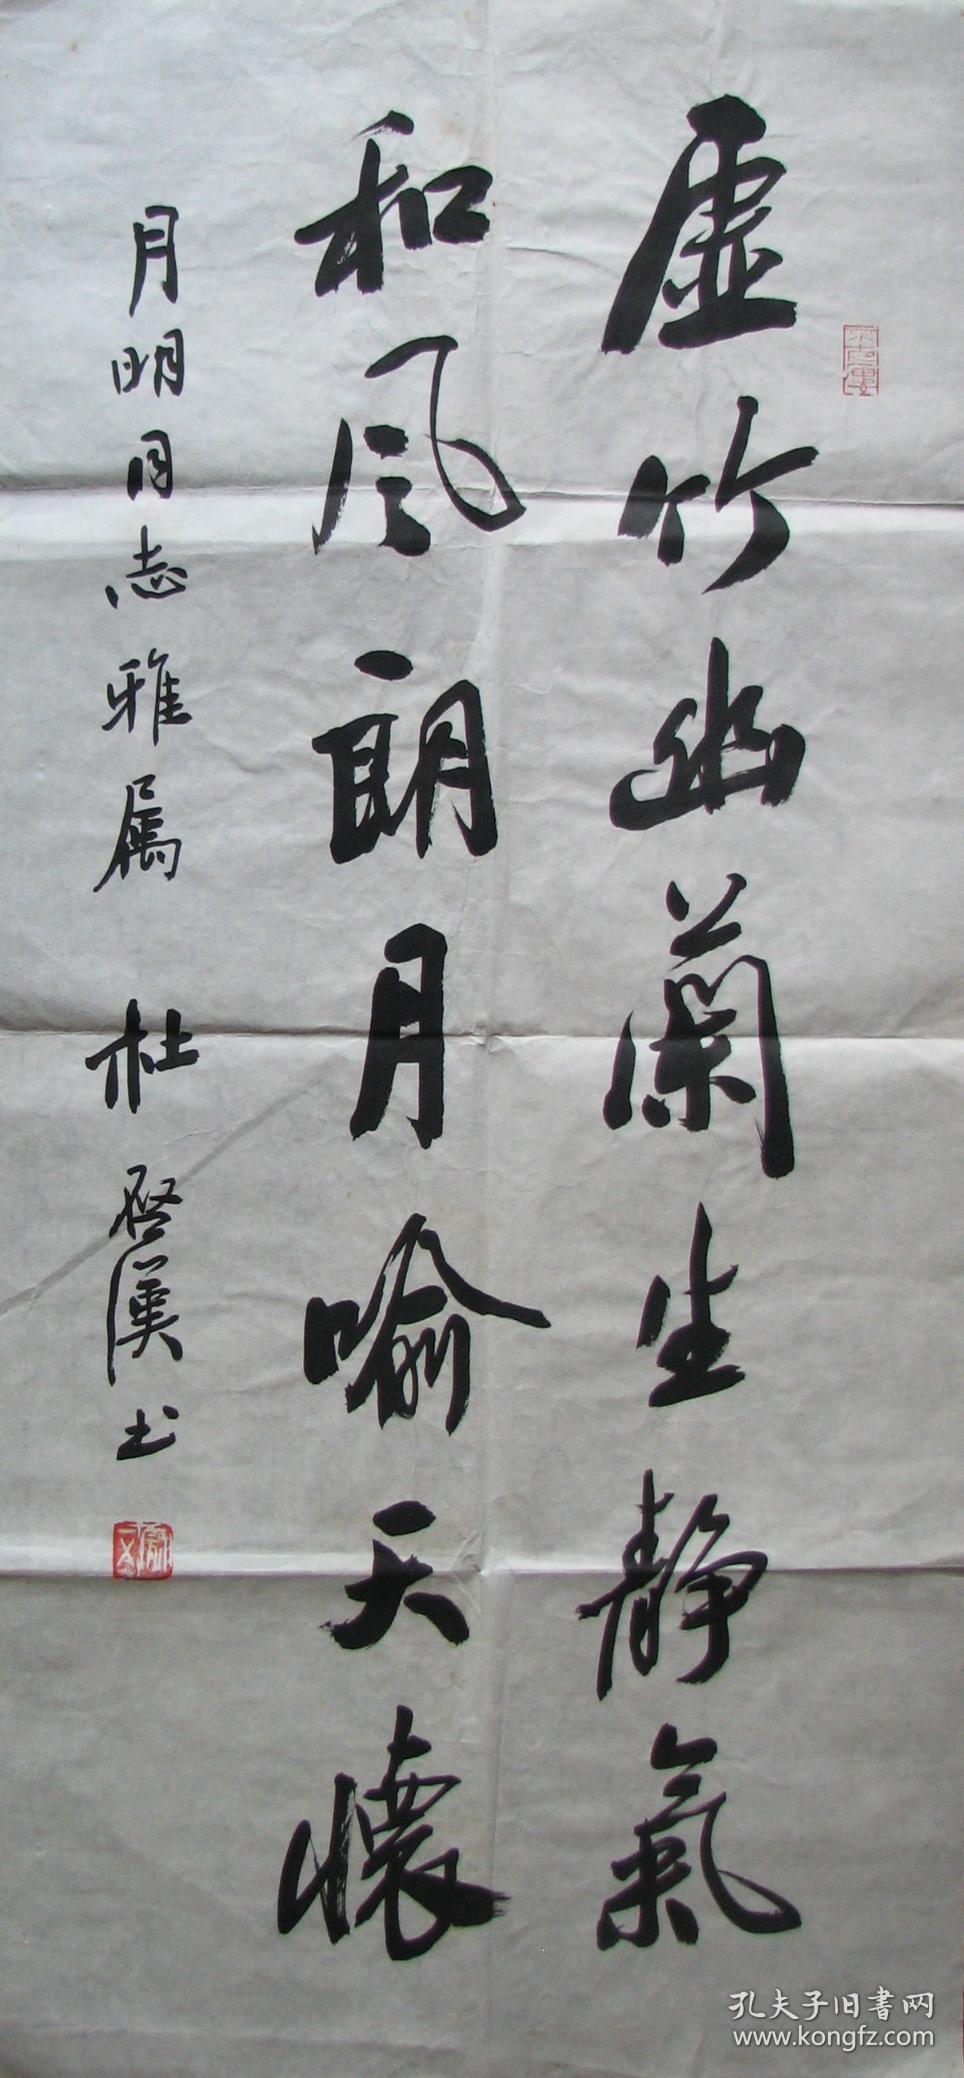 虚竹幽蘭生静氣
和风朗月喻天懷
月明同志雅属 杜启漢书
孔夫子旧書网
www.kongfz.com